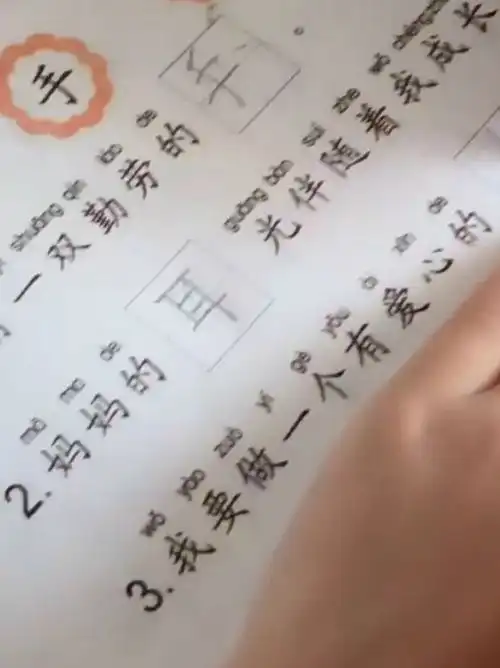 手
shuāng qín láo de
一双勤劳的手
mā ma de guāng bàn suí zhe wǒ chéng
2. 妈妈的耳光伴随着我成长
wǒ yào zuò yí gè yǒu ài xīn de
3. 我要做一个有爱心的